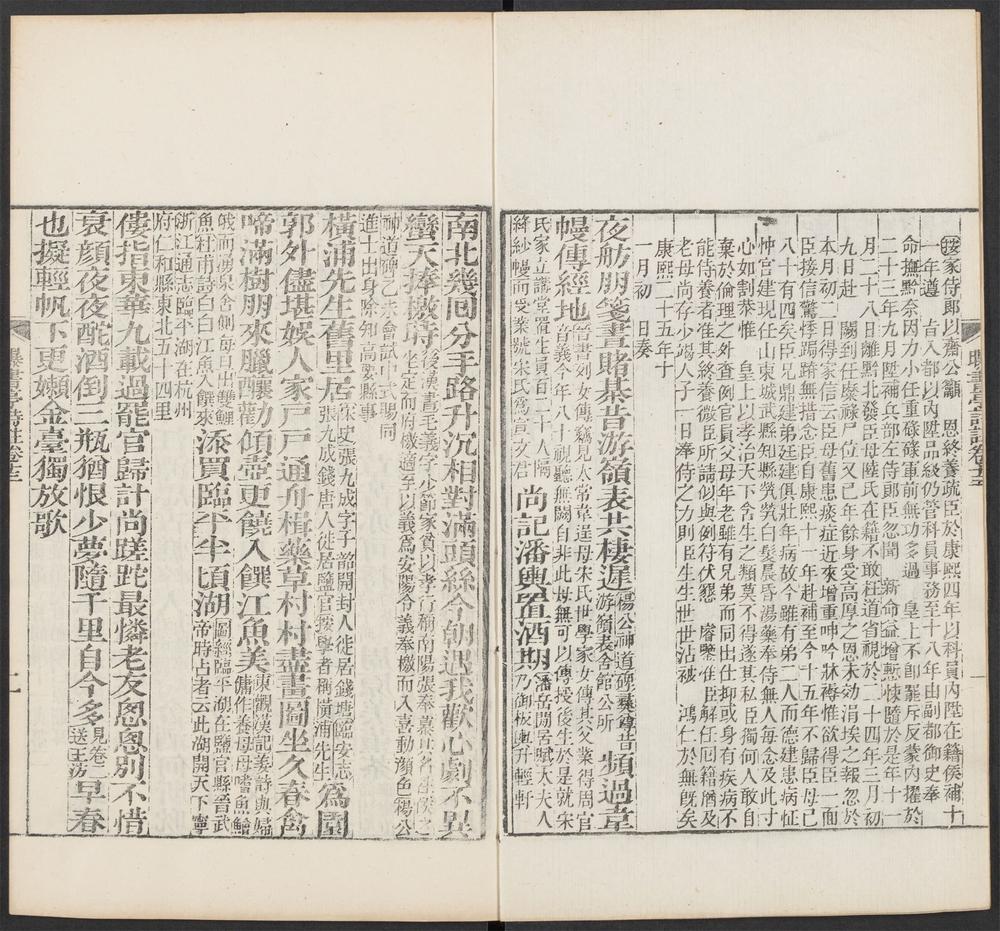 按家侍郎以齋公籲　恩終養疏臣於康熙四年以科員內陞在籍候補十
一年遵　旨入部以內陞品級仍管科員事務至十八年由副都御史奉
命撫黔奈因力小任重碌碌軍前無功多過　皇上不卽罷斥反蒙內擢於
二十三年九月陞補兵部左侍郎臣忽聞　新命益增慙悚隨於是年十一
月二十八日離黔北發臣母陸氏在籍不敢枉道省視於二十四年三月初
九日赴　闕到任縻祿尸位又已年餘身受高厚之恩未効涓埃之報忽於
本月初二日得家信云臣母舊患痰症近來增重呻吟牀褥惟欲得臣一面
臣接信驚悸跼蹐無措念臣自康熙十一年赴補至今十五年不歸臣母已
八十有四矣臣兄鼎建弟廷建俱壯年病故今雖有弟二人而德建患病怔
忡官建現任山東城武縣知縣煢煢白髮晨昏湯藥奉侍無人每念及此寸
心如割恭惟　皇上以孝治天下含生之類莫不得遂其私臣獨何人敢自
棄於倫理之外查例官員父母年老雖有兄弟而同出仕抑或身有疾病不
能侍養者准其終養微臣所請似與例符伏懇　睿鑒准臣解任囘籍及
老母尚存少竭人子一日奉侍之力則臣生生世世沾被　鴻仁於無旣矣
康熙二十五年十
一月初　日奏
夜舫朋箋晝賭棊昔游嶺表共棲遲楊公神道碑泰尊昔游嶺表舍館公所頻過韋
幔傳經地晉書列女傳韋逞母宋氏世學家女傳其父業得周官音義今年八十視聽無闕自非此母無可以傳授後生於是就宋氏家立講堂置生員百二十人隔絳紗幔而受業號宋氏爲宣文君尚記潘輿置酒期潘岳閒居賦太夫人乃御板輿升輕軒
南北幾囘分手路升沉相對滿頭絲今朝遇我歡心劇不異
蠻天捧檄時後漢書毛義字少節家貧以孝行稱南陽張奉慕其名往侯之坐定而府檄適至以義爲安陽令義奉檄而入喜動顏色楊公神道碑乙未會試中式賜同進士出身除知高要縣事
橫浦先生舊里居宋史張九成字子韶開封人徙居錢塘臨安志張九成錢唐人徙居鹽官學者稱橫浦先生爲園
郭外儘堪娛人家戶戶通舟楫藥草村村盡畫圖坐久春禽
啼滿樹朋來臘釀劝傾壺更饒入饌江魚美東觀漢記姜詩與婦傭作養母母嗜魚鱠俄而湧泉舍側每旦出雙鯉魚杜甫詩白白江魚入饌來添買臨平半頃湖圖經臨平湖在鹽官縣晉武帝時占者云此湖開天下寧浙江通志臨平湖在杭州府仁和縣東北五十四里
僂指東華九載過罷官歸計尚蹉跎最憐老友悤悤別不惜
衰顏夜夜酡酒倒三瓶猶恨少夢隨千里自今多見卷二送王汸早春
也擬輕帆下更嬾金臺獨放歌